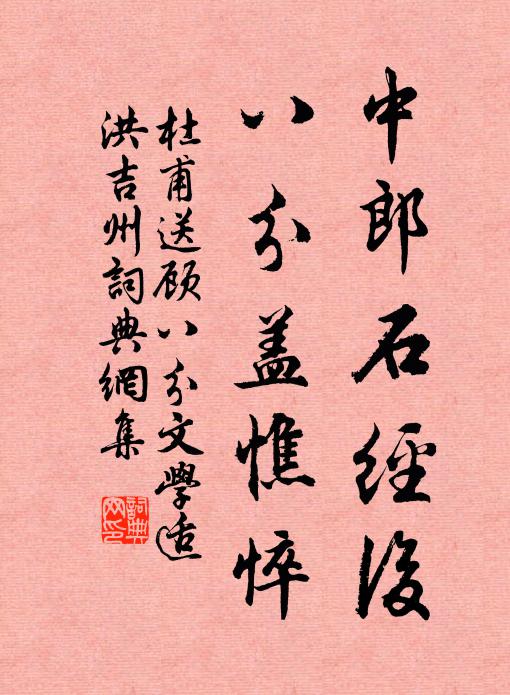 中郎石經後
八分盖憔悴
杜甫送顾八分文學适
洪吉州詞典網集
詞典网印